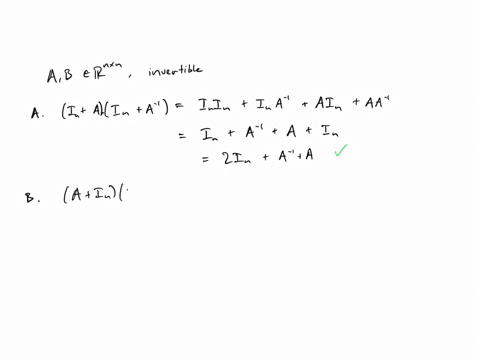 A, B ∈ ℝⁿˣⁿ, invertible
A. (Iₙ + A)(Iₙ + A⁻¹) = IₙIₙ + IₙA⁻¹ + AIₙ + AA⁻¹
= Iₙ + A⁻¹ + A + Iₙ
= 2Iₙ + A⁻¹ + A ✓
B. (A + Iₙ)(